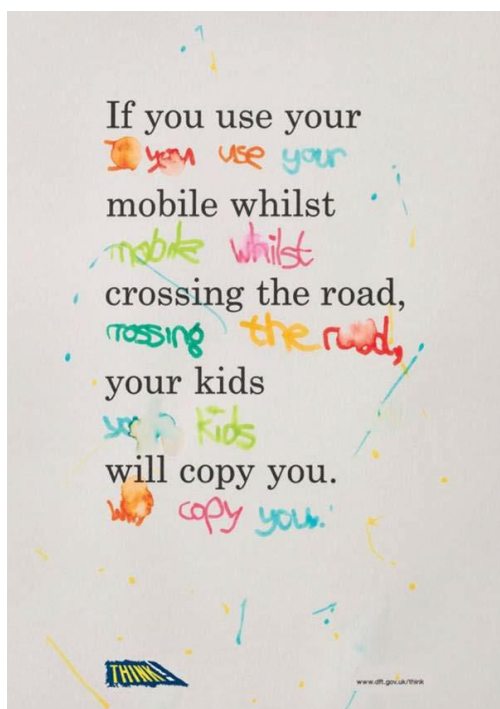 If you use your
I you use your
mobile whilst
mobile whilst
crossing the road,
crossing the road,
your kids
your kids
will copy you.
will copy you.
THINK!
www.dft.gov.uk/think